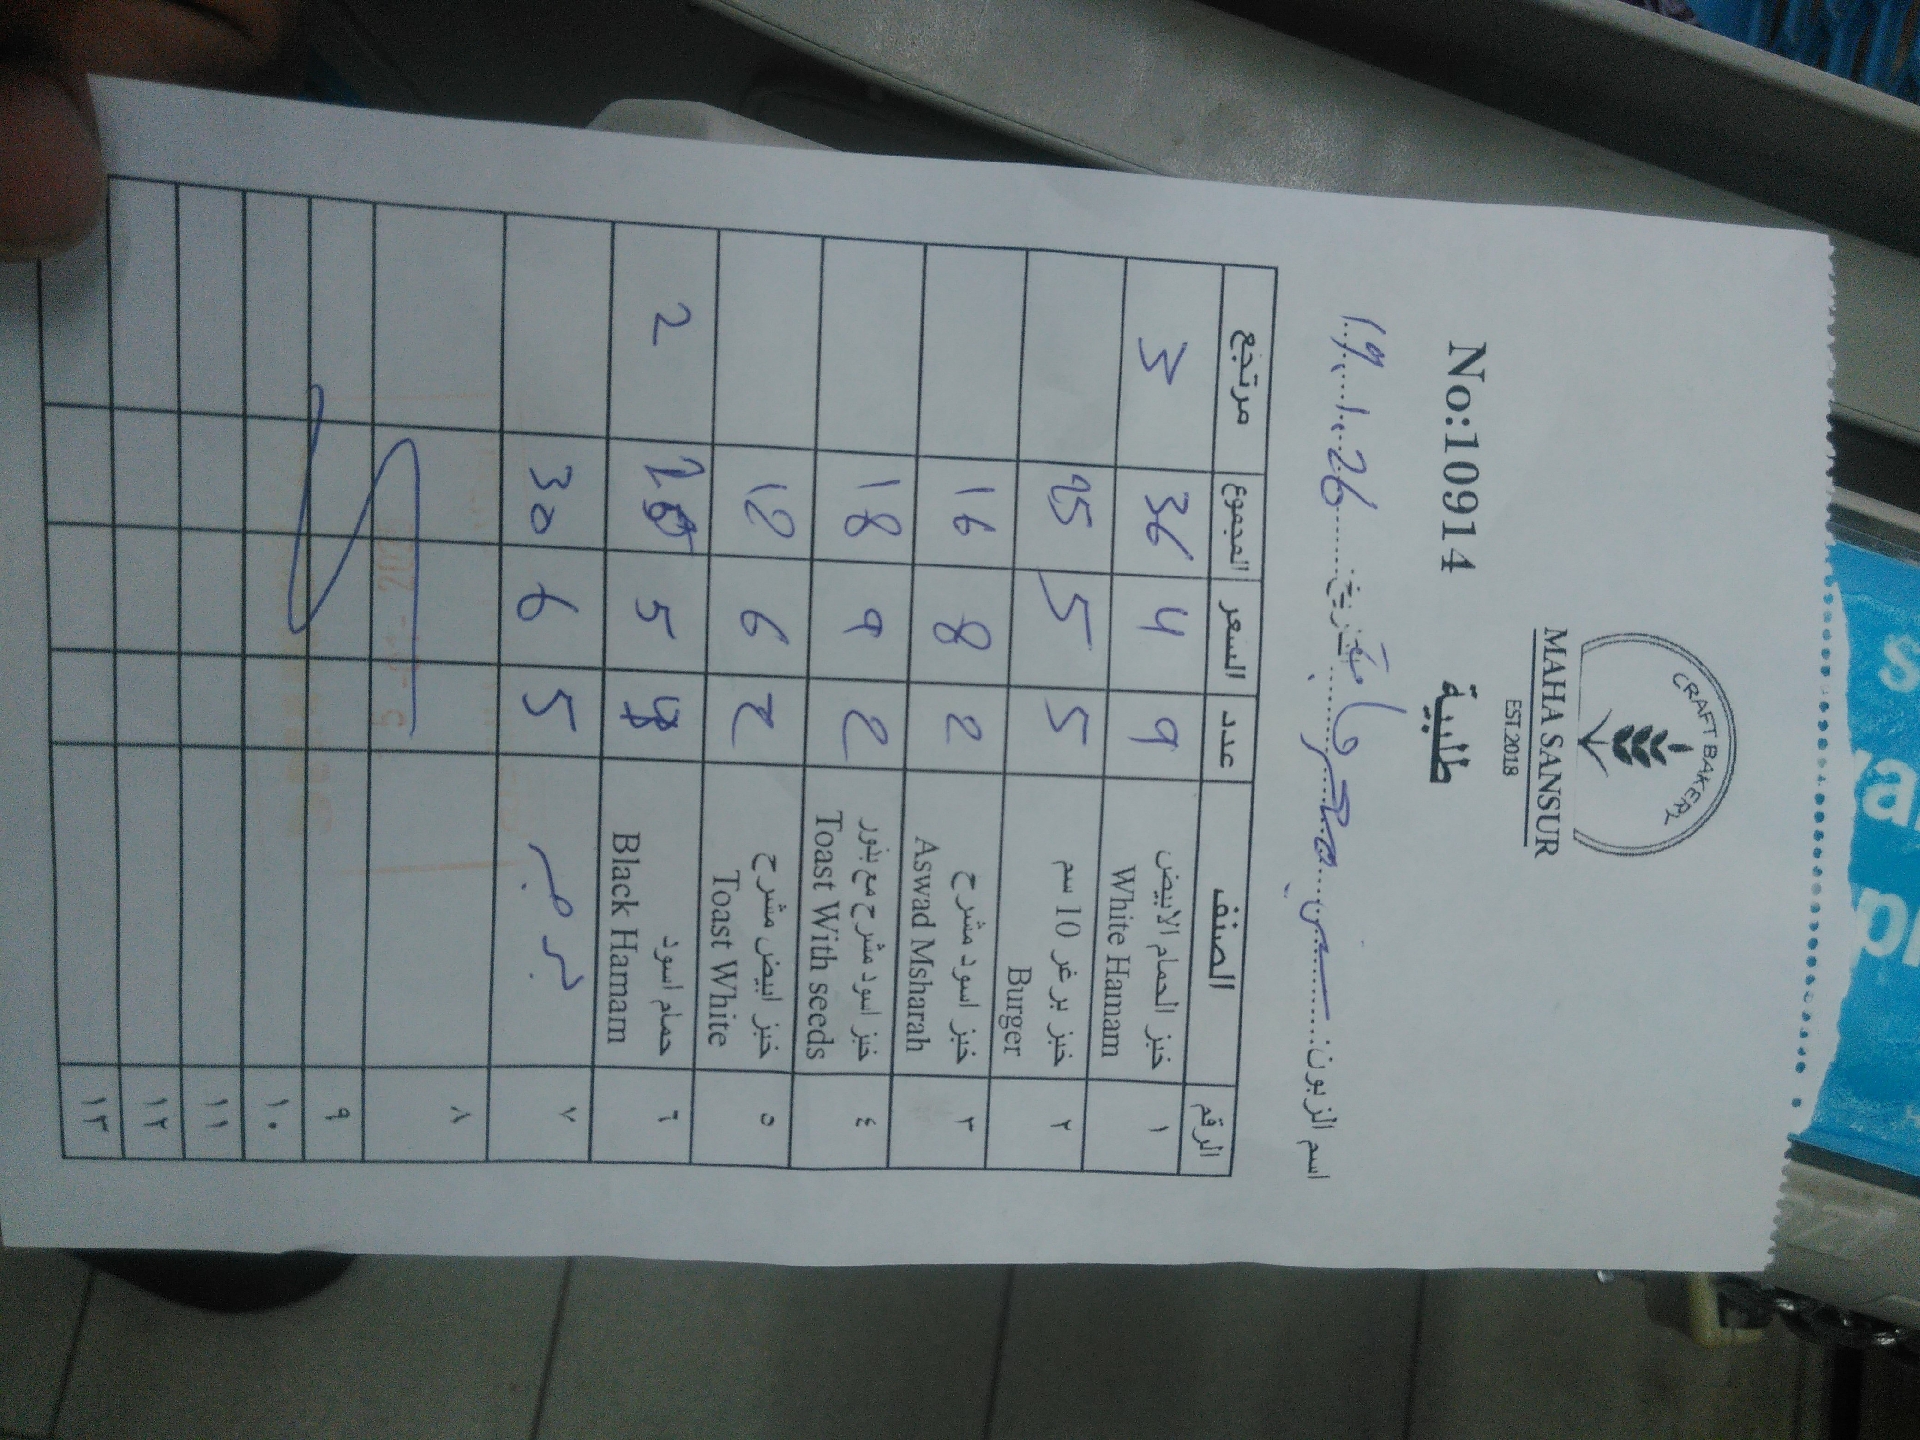 CRAFT BAKERY
MAHA SANSUR
EST.2018
طلبية
No:10914
اسم الزبون: التاريخ: 19.1.26
الرقم الصنف عدد السعر المجموع مرتجع
١ خبز الحمام الابيض White Hamam 9 4 36 3
٢ خبز برغر 10 سم Burger 5 5 25
٣ خبز اسود مشرح Aswad Msharah 2 8 16
٤ خبز اسود مشرح مع بذور Toast With seeds 2 9 18
٥ خبز ابيض مشرح Toast White 2 6 12
٦ حمام اسود Black Hamam 5 2
٧ 5 6 30
٨
٩
١٠
١١
١٢
١٣